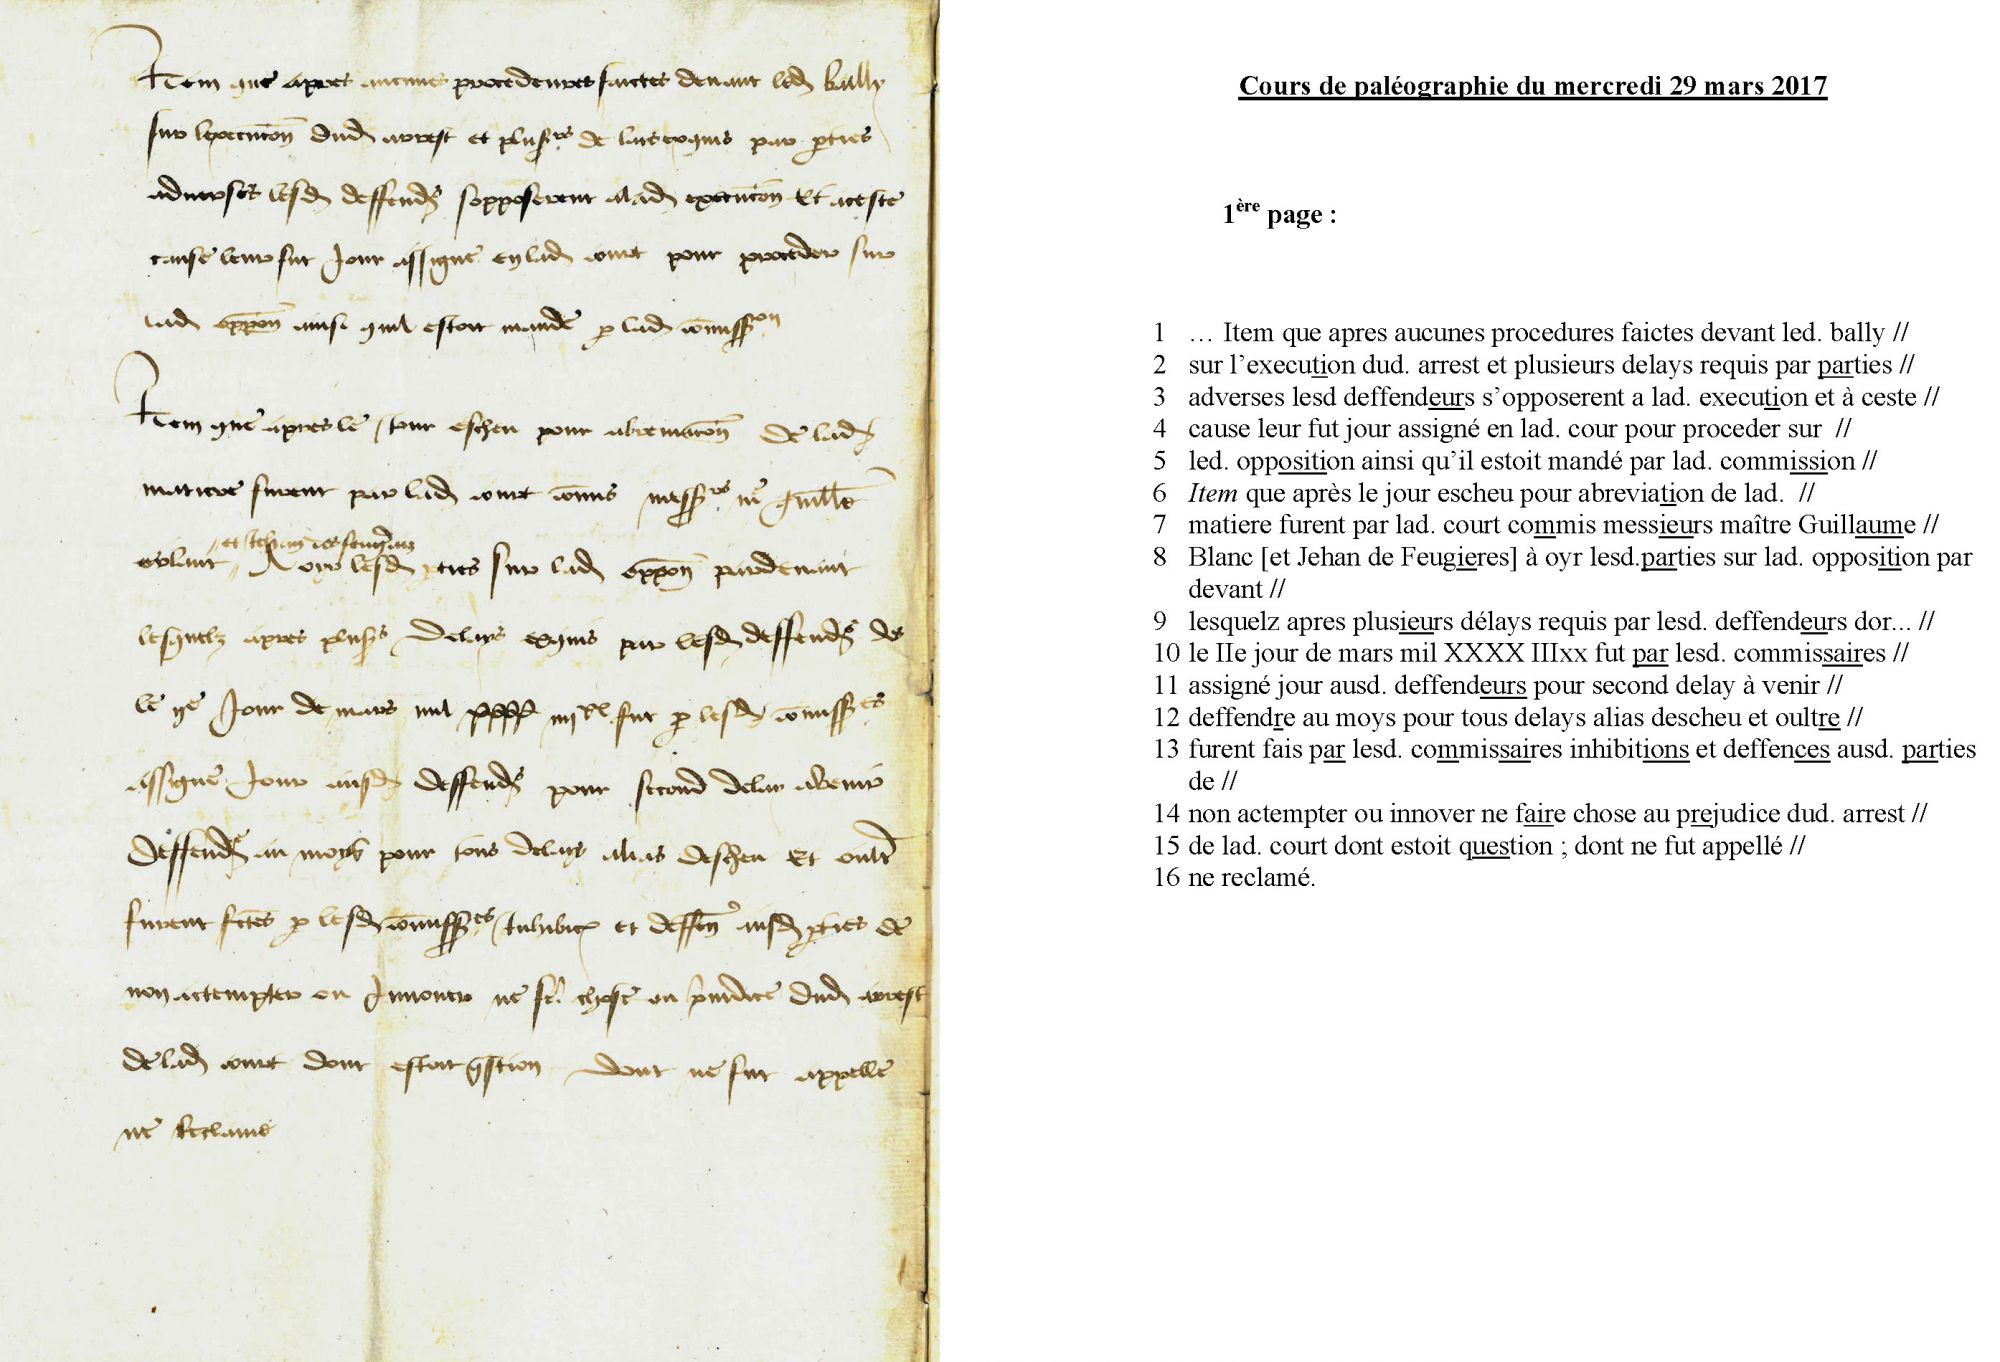 Item que apres aucunes procedeures faictes devant led bally
sur lexecucon dud arrest et plusrs de lais requis par pties
adverses lesd deffends sopposerent alad execucon Et aceste
cause leur fut Jour assigne enlad court pour proceder sur
lad oppon ainsi quil estoit mande p lad comission
Item que apres le Jour escheu pour abreviacon de lad
matiere furent par lad court comis messrs me guille
et Jehan de feugieres
blanc A oyr lesd pties sur lad oppon pardevant
lesquelz apres plusrs delays requis par lesd deffends
le ije Jour de mars mil fut p lesd comisses
assigne Jour ausd deffends pour second delay avenir
deffendre au moys pour tous delays alias descheu Et oultre
furent fctes p lesd comisses Inhibicons et deffens ausd pties de
non actempter ou Innover ne fe chose ou preiudice dud arrest
de lad court dont estoit qstion dont ne fut appelle
ne Reclame
Cours de paléographie du mercredi 29 mars 2017
1ère page :
1 … Item que apres aucunes procedures faictes devant led. bally //
2 sur l’execution dud. arrest et plusieurs delays requis par parties //
3 adverses lesd deffendeurs s’opposerent a lad. execution et à ceste //
4 cause leur fut jour assigné en lad. cour pour proceder sur //
5 led. opposition ainsi qu’il estoit mandé par lad. commission //
6 Item que après le jour escheu pour abreviation de lad. //
7 matiere furent par lad. court commis messieurs maître Guillaume //
8 Blanc [et Jehan de Feugieres] à oyr lesd.parties sur lad. opposition par
devant //
9 lesquelz apres plusieurs délays requis par lesd. deffendeurs dor... //
10 le IIe jour de mars mil XXXX IIIxx fut par lesd. commissaires //
11 assigné jour ausd. deffendeurs pour second delay à venir //
12 deffendre au moys pour tous delays alias descheu et oultre //
13 furent fais par lesd. commissaires inhibitions et deffences ausd. parties
de //
14 non actempter ou innover ne faire chose au prejudice dud. arrest //
15 de lad. court dont estoit question ; dont ne fut appellé //
16 ne reclamé.